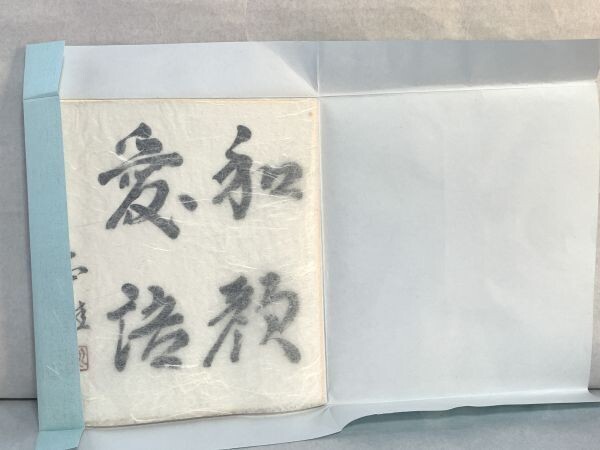 和顔
愛語